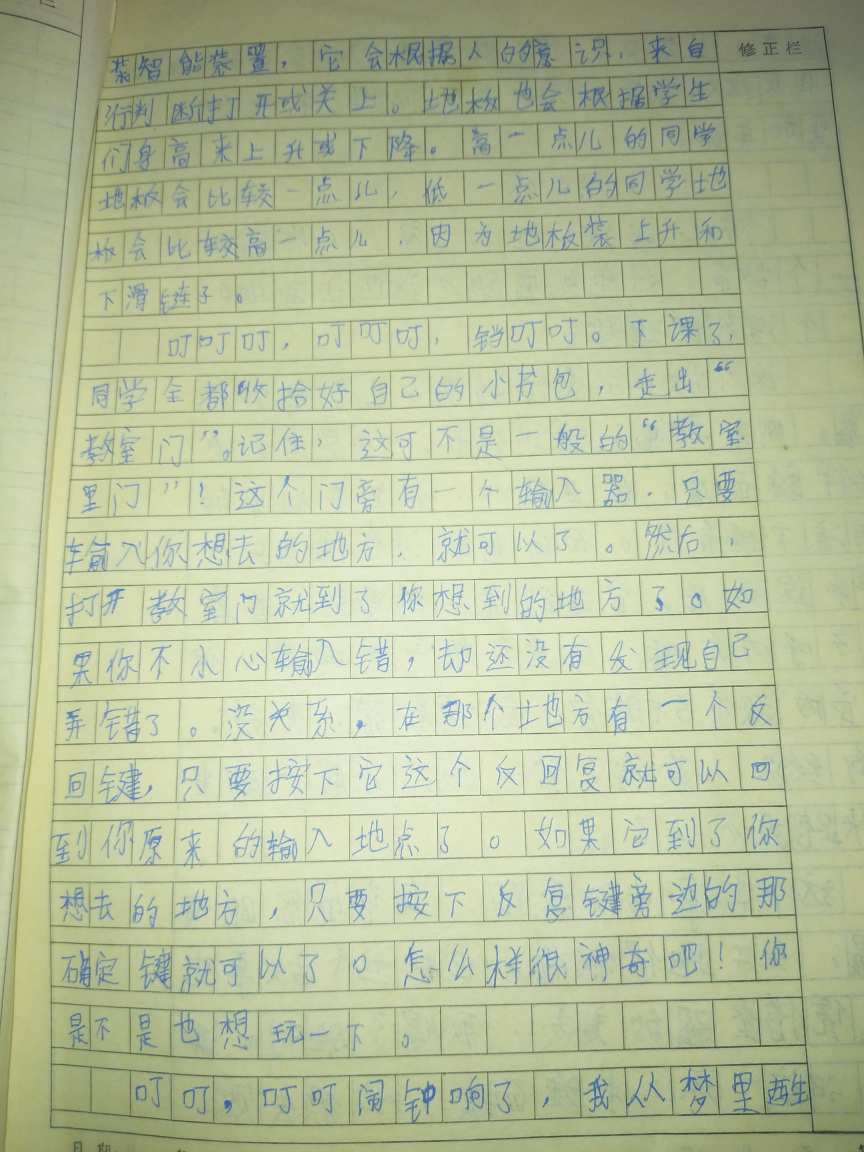 修正栏
装智能装置，它会根据人的意识，来自
行判断打开或关上。地板也会根据学生
们身高来上升或下降。高一点儿的同学
地板会比较一点儿，低一点儿的同学地
板会比较高一点儿，因为地板装上升和
下滑链子。
叮叮叮，叮叮叮，铛叮叮。下课了，
同学全都收拾好自己的小书包，走出“
教室门”。记住，这可不是一般的“教室
里门”！这个门旁有一个输入器，只要
输入你想去的地方，就可以了。然后，
打开教室门就到了你想到的地方了。如
果你不小心输入错，却还没有发现自己
弄错了。没关系，在那个地方有一个反
回键，只要按下它这个反回复就可以回
到你原来的输入地点了。如果它到了你
想去的地方，只要按下反复键旁边的那
确定键就可以了。怎么样很神奇吧！你
是不是也想玩一下。
叮叮，叮叮闹钟响了，我从梦里醒
日期